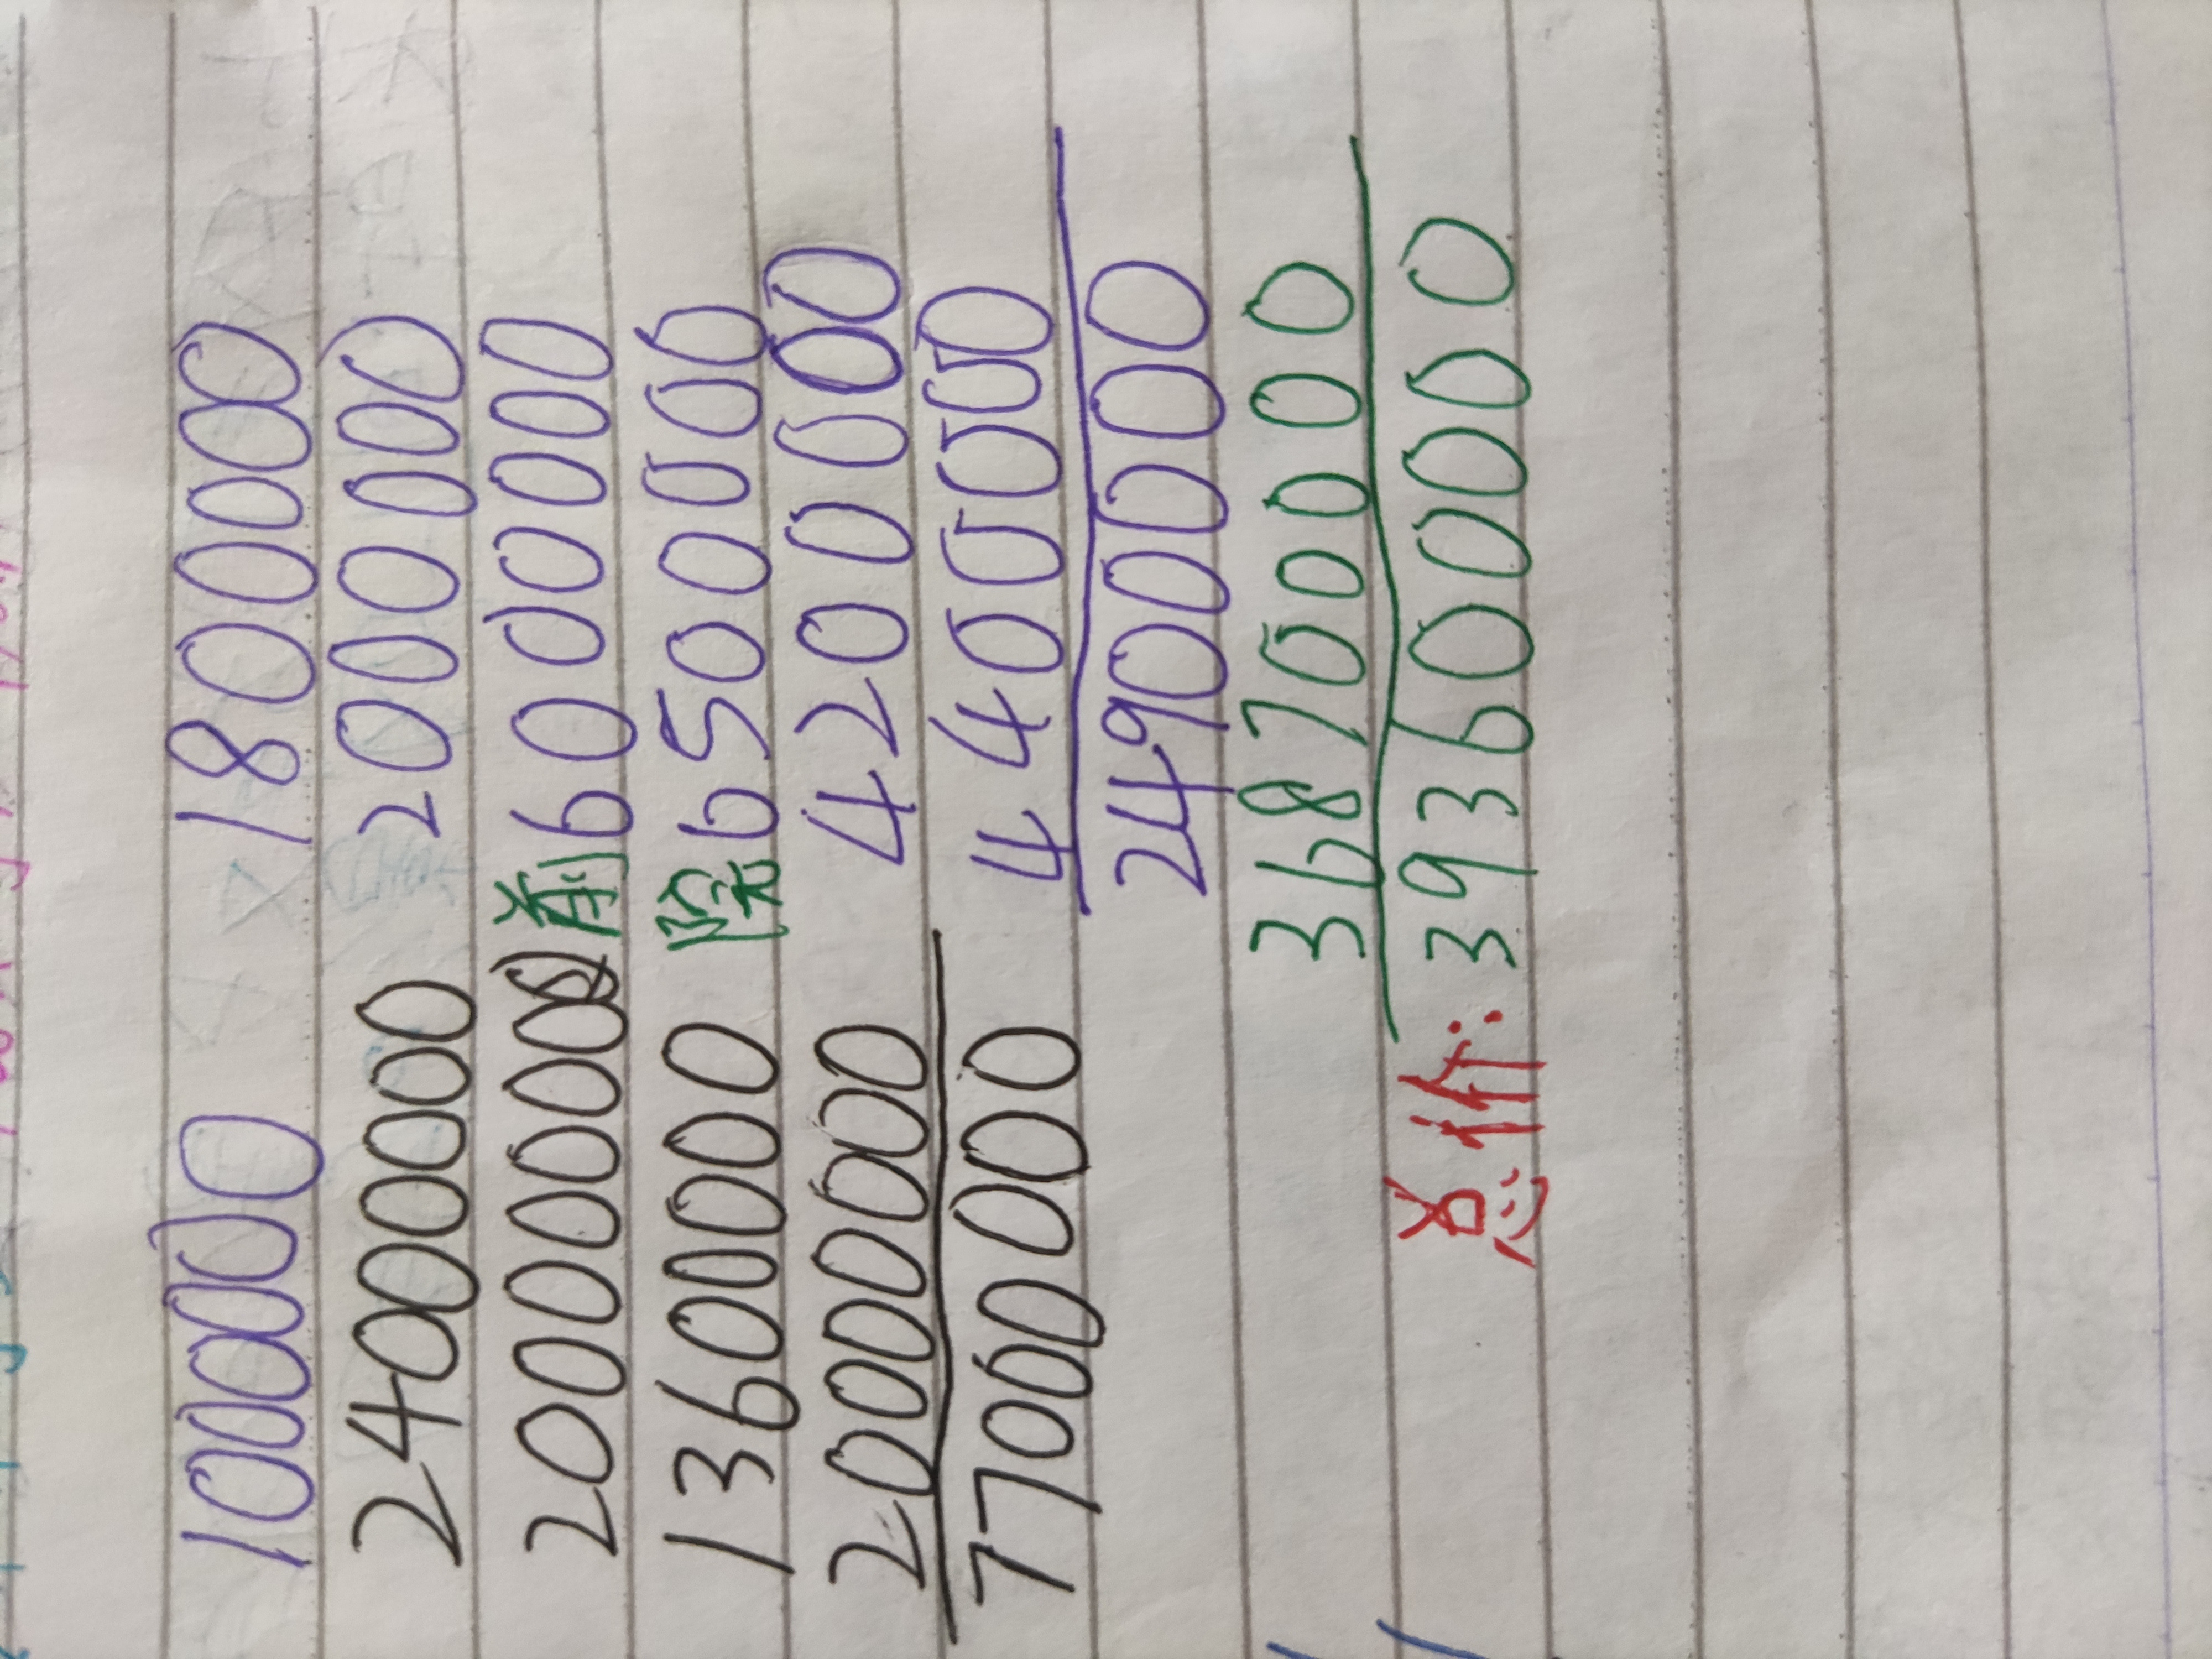 1000000 1800000
24000000 2000000
20000000 前 6000000
13600000 院 6500000
20000000 4200000
77000000 4400000
24900000
368700000
总价: 393600000